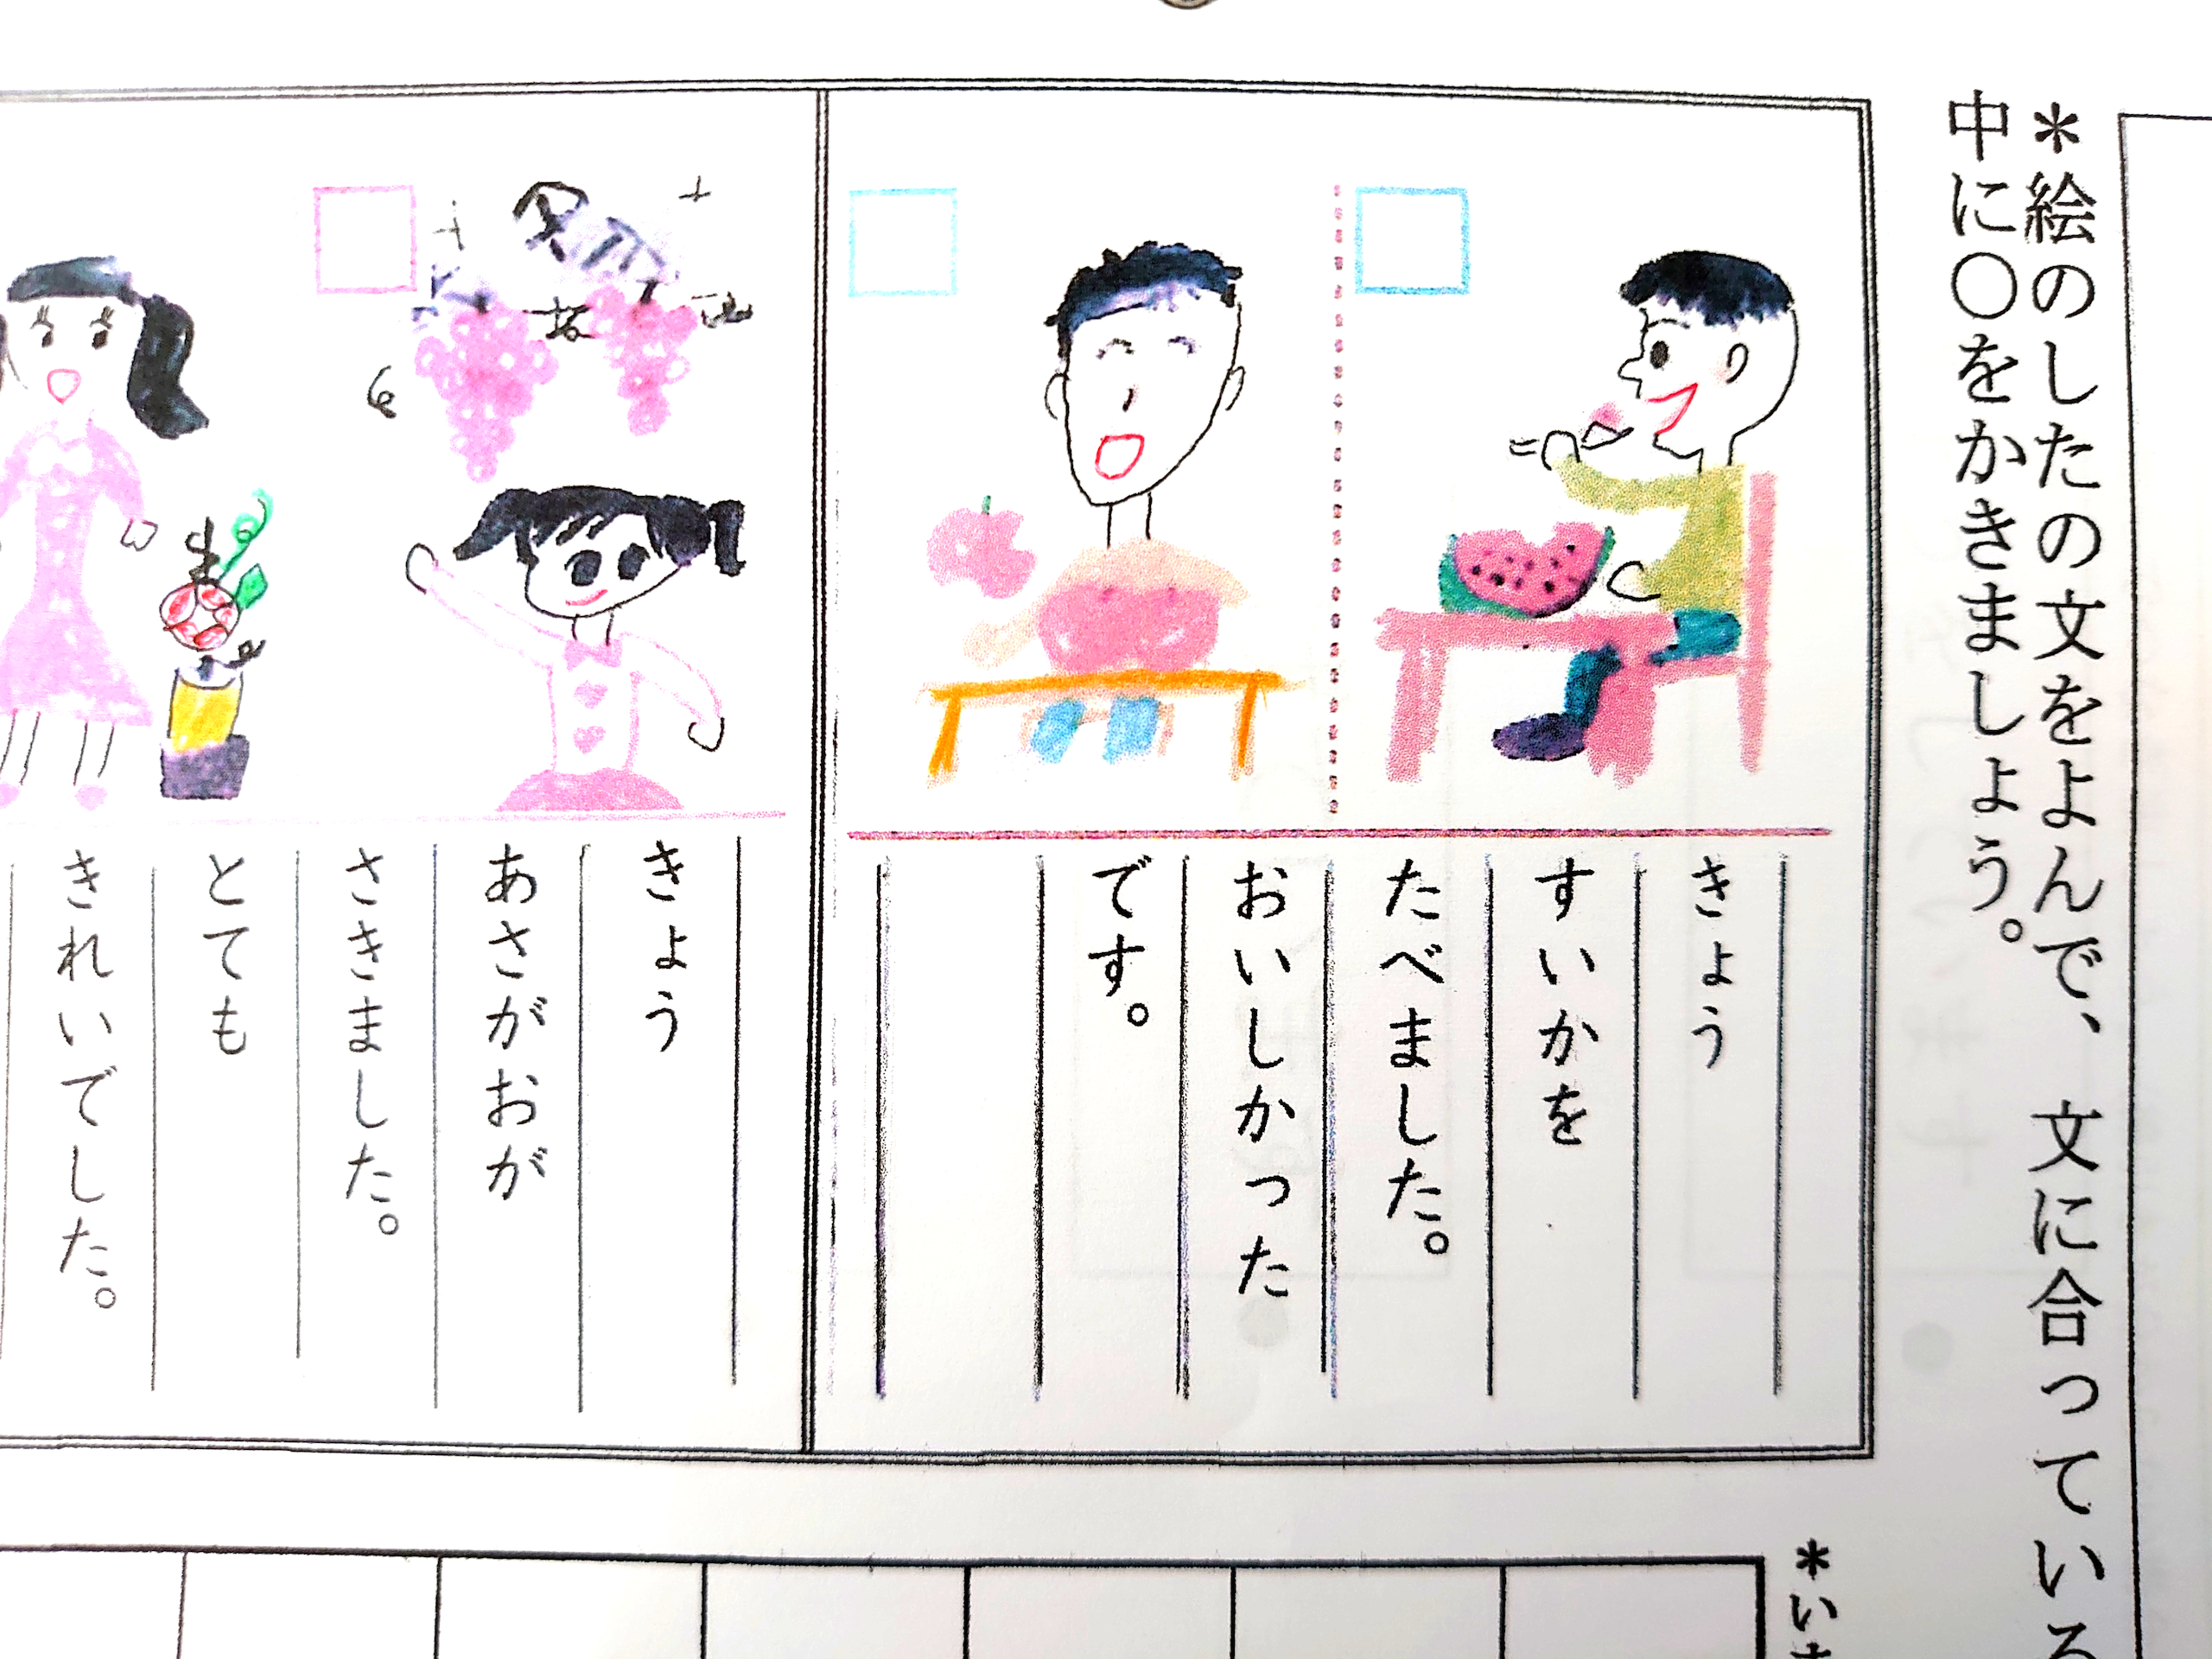 ＊絵のしたの文をよんで、文に合っている
中に〇をかきましょう。
きょう
すいかを
たべました。
おいしかった
です。
きょう
あさがおが
さきました。
とても
きれいでした。
＊い